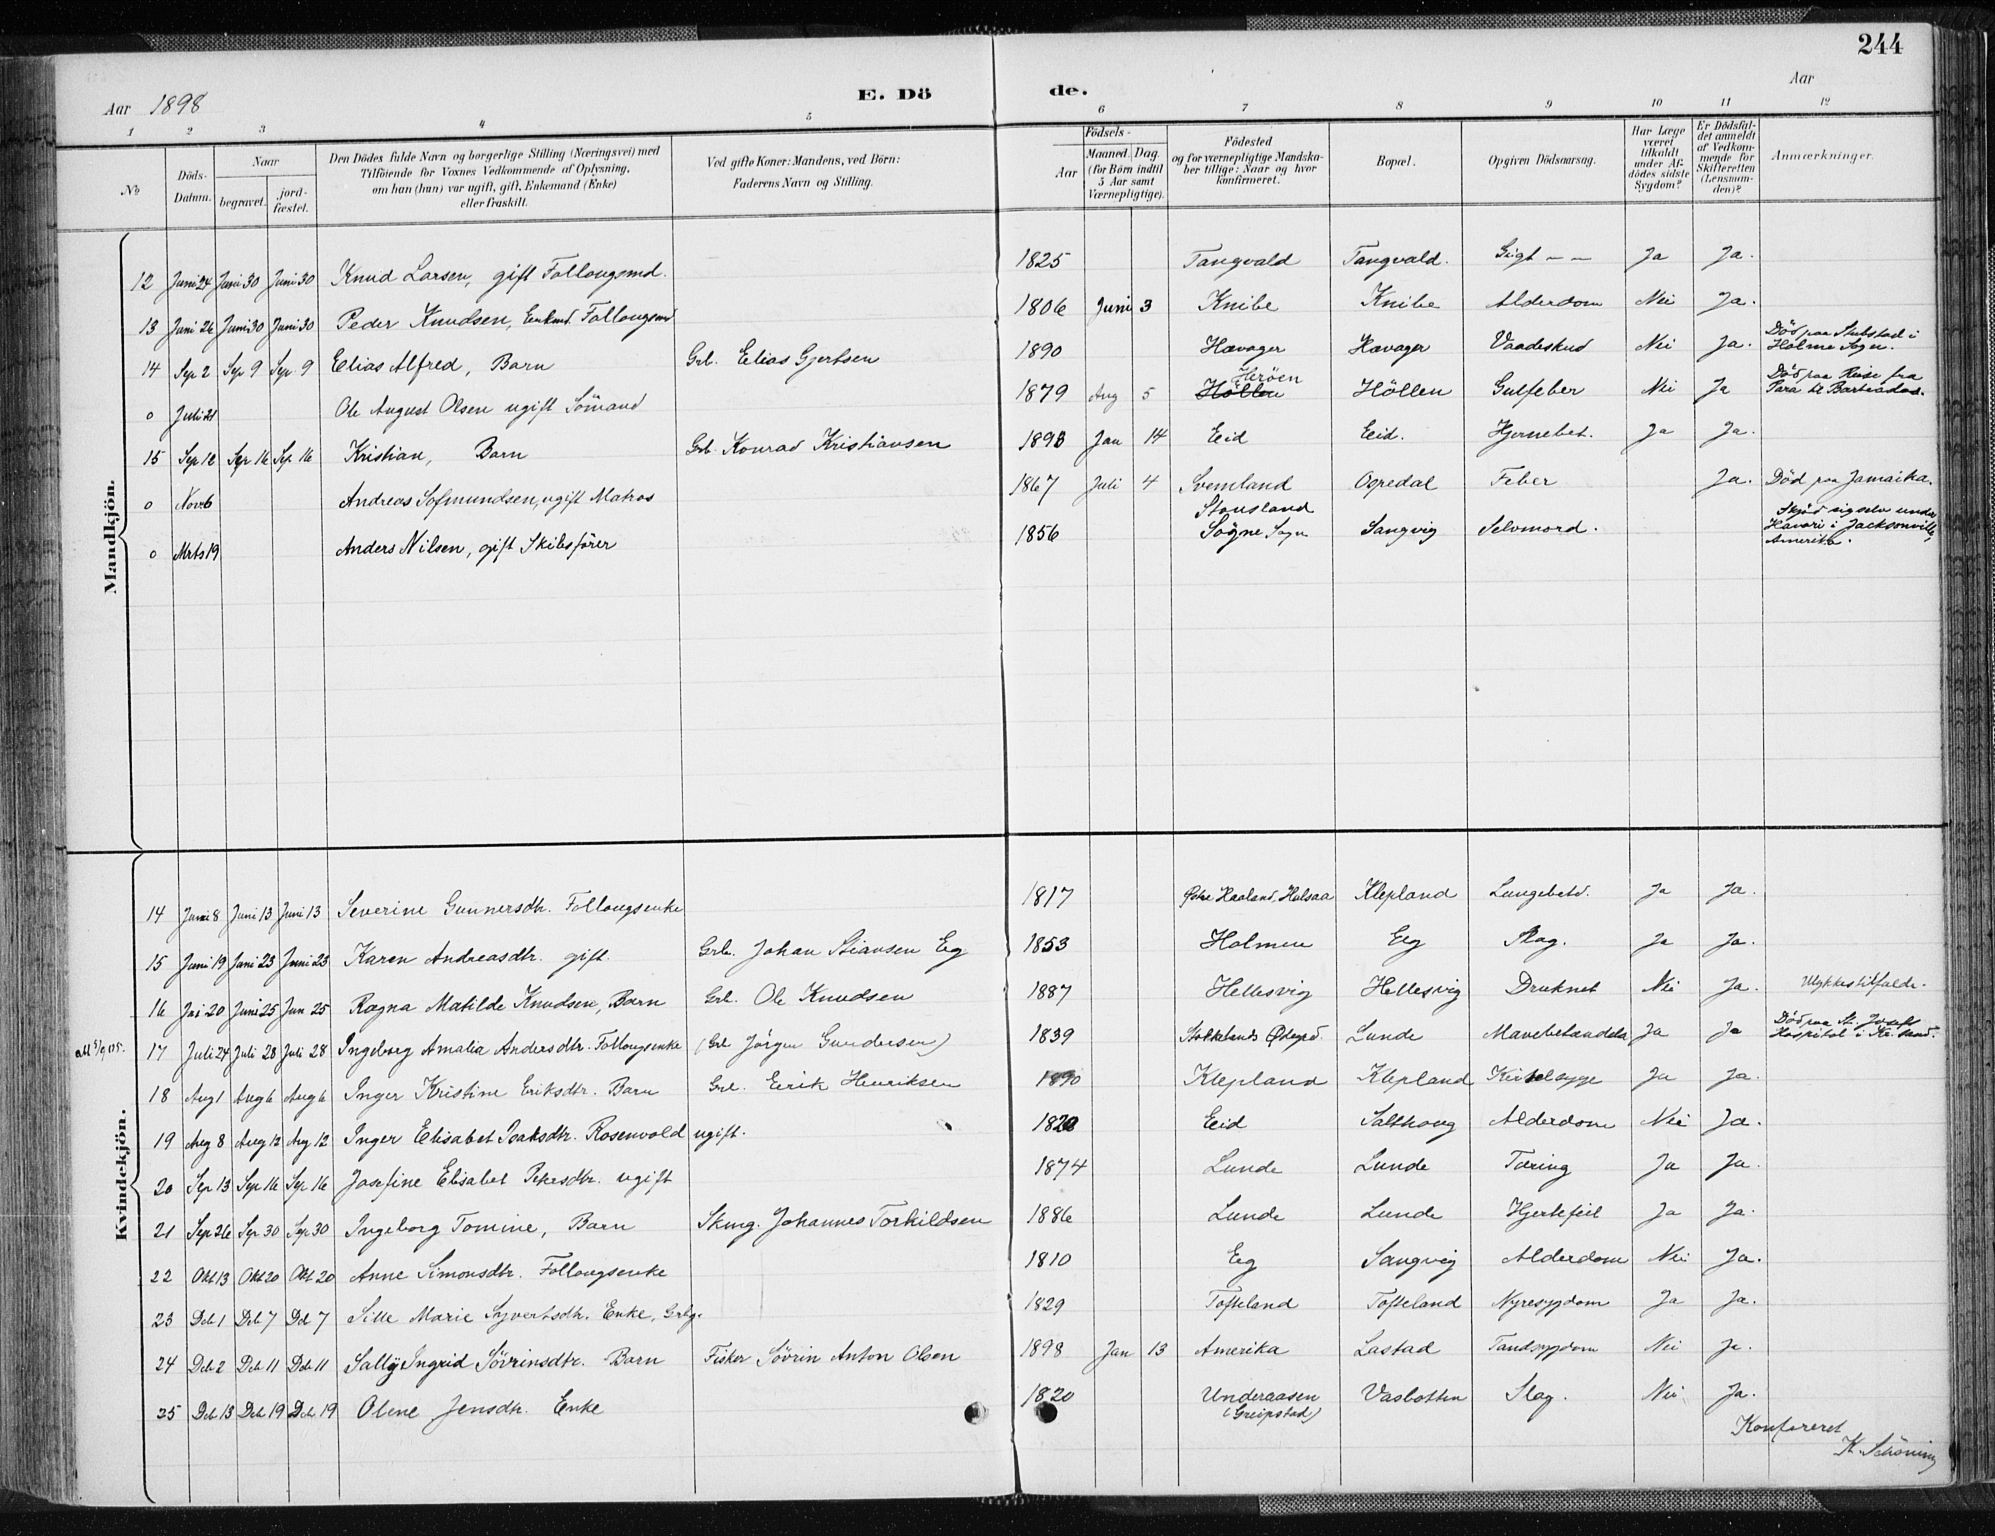 244
Aar 1898 E. Dö de. Aar
1 2 3 4 5 6 7 8 9 10 11 12
No
Döds-Datum.
Naar
begravet.
jord-fæstet.
Den Dödes fulde Navn og borgerlige Stilling (Næringsvei) med
Tilföiende for Voxnes Vedkommende af Oplysning,
om han (hun) var ugift, gift, Enkemand (Enke)
eller fraskilt.
Ved gifte Koner: Mandens, ved Börn:
Faderens Navn og Stilling.
Födsels-
Aar
Maaned. Dag.
(for Börn indtil
5 Aar samt
Værnepligtige).
Födested
og for værnepligtige Mandska-
ber tillige: Naar og hvor
konfirmeret.
Bopæl.
Opgiven Dödsaarsag.
Har Læge
været
tilkaldt
under Af-
dödes sidste
Sygdom?
Er Dödsfal-
det anmeldt
af Vedkom-
mende for
Skifteretten
(Lensman-
den)?
Anmærkninger.
Mandkjön.
12 Juni 24 Juni 30 Juni 30 Knud Larsen, gift Follougsmd. 1825 Tangvald Tangvald. Gigt Ja Ja.
13 Juni 26 Juni 30 Juni 30 Peder Knudsen, Enkmd. Follougsmd 1806 Juni 3 Knibe Knibe Alderdom Nei Ja.
14 Sep 2 Sep 9 Sep 9 Elias Alfred, Barn Grb. Elias Gjertsen 1890 Havager Havager Vaadeskud Nei Ja. Död paa Stubstad i Holme Sogn.
0 Juli 21 Ole August Olsen ugift Sömand 1879 Aug 5 Höllen Heröen Höllen Gulfeber Nei Ja Död paa Reise fra Para til Barbados.
15 Sep 12 Sep 16 Sep 16 Kristian, Barn Grb. Konrad Kristiansen 1898 Jan 14 Eid Eid. Hjernebet. Ja Ja.
0 Novb 6 Andreas Sofmundsen, ugift Matros 1867 Juli 4 Svemland Ospedal Feber Ja. Död paa Jamaika.
0 Mrts 19 Anders Nilsen, gift Skibsförer 1856 Stousland Sögne Sogn Sangvig Selvmord. Skjöd sig selv under Havari i Jacksonville, Amerika.
Kvindekjön.
14 Juni 8 Juni 13 Juni 13 Severine Gunnersdtr. Follougsenke 1817 Østre Haaland, Halsaa Klepland Lungebetd. Ja Ja.
15 Juni 19 Juni 23 Juni 23 Karen Andreasdtr. gift Grb. Johan Stiansen Eg 1853 Holmen Eg Slag. Ja Ja.
16 Jui 20 Juni 25 Jun 25 Ragna Matilde Knudsen, Barn Grb. Ole Knudsen 1887 Hellesvig Hellesvig Druknet Nei Ja. Ulykkestilfælde.
att 5/9 05. 17 Juli 24 Juli 28 Juli 28 Ingeborg Amalia Andersdtr. Follougsenke (Grb Jörgen Gundersen) 1839 Stokkelands Ødegrd. Lunde Mavebetændelse Ja Ja Död paa St. Josefs Hospital i Kr.sand.
18 Aug 1 Aug 6 Aug 6 Inger Kristine Eriksdtr. Barn Grb. Eerik Henriksen 1890 Klepland Klepland Kirtelsyge Ja Ja.
19 Aug 8 Aug 12 Aug 12 Inger Elisabet Isaksdtr. Rosenvold ugift. 1820 Eid Salthoug Alderdom Nei Ja.
20 Sep 13 Sep 16 Sep 16 Josefine Elisabet Petersdtr. ugift 1874 Lunde Lunde Tæring Ja Ja.
21 Sep 26 Sep 30 Sep 30 Ingeborg Tomine, Barn Skmg. Johannes Torkildsen 1886 Lunde Lunde Hjertefeil Ja Ja.
22 Okt 13 Okt 20 Okt 20 Anne Simonsdtr. Follougsenke 1810 Eg Sangvig Alderdom Nei Ja.
23 Deb 1 Deb 7 Deb 7 Sille Marie Syvertsdtr. Enke, Grbg. 1829 Tofteland Tofteland Nyresygdom Ja Ja.
24 Deb 2 Deb 11 Deb 11 Sally Ingrid Sövrinsdtr. Barn Fisker Sövrin Anton Olsen 1898 Jan 13 Amerika Lastad Tandsygdom Nei Ja.
25 Deb 13 Deb 19 Deb 19 Olene Jensdtr. Enke 1820 Underaasen (Greipstad) Vasbotten Slag. Nei Ja.
Konfereret
K. Schöning